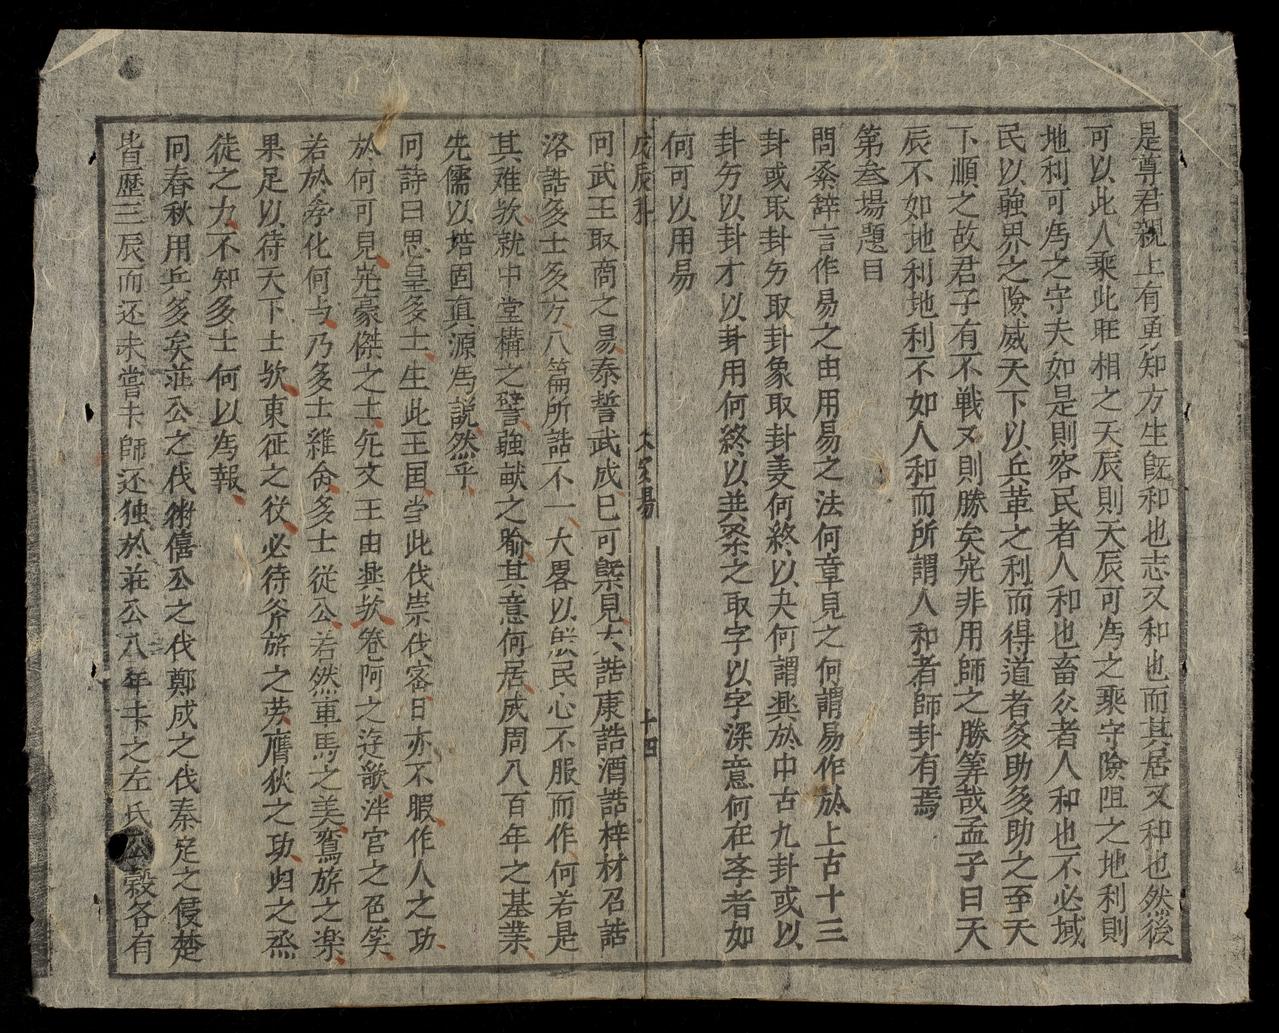 是尊君親上有勇知方生旣和也志又和也而其居又和也然後
可以此人乘此旺相之天辰則天辰可爲之乘守險阻之地利則
地利可爲之守夫如是則容民者人和也畜众者人和也不必域
民以強界之險威天下以兵革之利而得道者多助多助之至天
下順之故君子有不戰又則勝矣兂非用師之勝筭哉孟子曰天
辰不如地利地利不如人和而所謂人和者師卦有焉
第叁場題目
問䋣辝言作易之由用易之法何章見之何謂易作於上古十三
卦或取卦名取卦象取卦变何終以夬何謂興於中古九卦或以
卦名以卦才以卦用何終以巽䋣之取字以字深意何在孝者如
何可以用易
戊辰科
大㝎易
十四
问武王取商之易泰誓武成已可槩見大誥康誥酒誥梓材召誥
洛誥多士多方八篇所誥不一大畧以殷民心不服而作何若是
其难欤就中堂構之譬強猷之喻其意何居成周八百年之基業
先儒以培固真源爲説然乎
问詩曰思皇多士生此王囯当此伐崇伐密日亦不暇作人之功
於何可見兂豪傑之士兂文王由興欤卷阿之逰歌泮宫之色笑
若於孝化何与乃多士雖侖多士從公若然車馬之美鸞旂之楽
果足以待天下士欤東征之役必待斧旂之劳膺狄之功归之烝
徒之力不知多士何以爲報
问春秋用兵多矣莊公之伐衛僖公之伐鄭成之伐秦定之侵楚
皆歷三辰而还未嘗未師还独於莊公八年未之左氏公穀各有